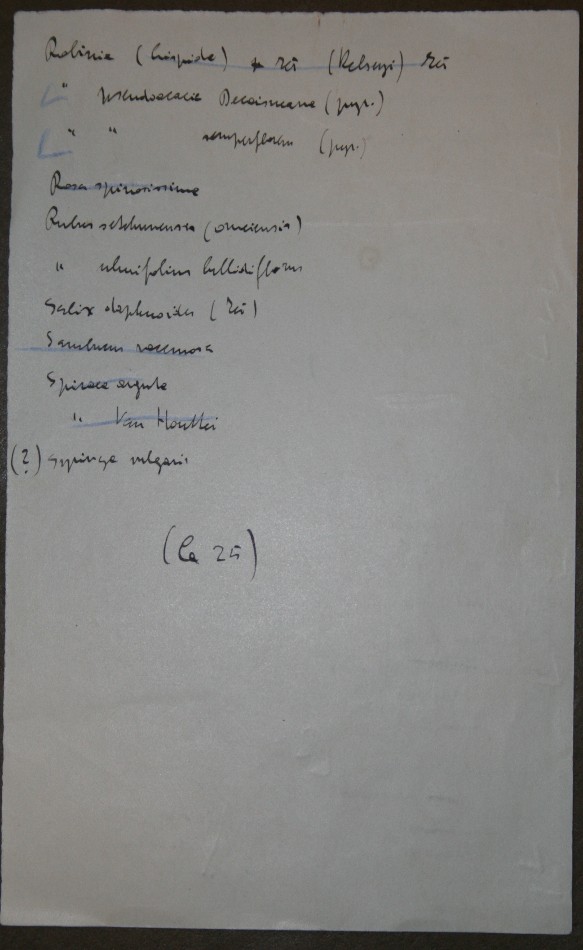 Robinia (hispida) (Kelseyi)
" pseudoacacia Decaisneana (pyr.)
" " semperflorens (pyr.)
Rosa spinosissima
Rubus setchuenensis (omeiensis)
" ulmifolius bellidiflorus
Salix daphnoides
Sambucus racemosa
Spiraea arguta
" Van Houttei
(?) Syringa vulgaris